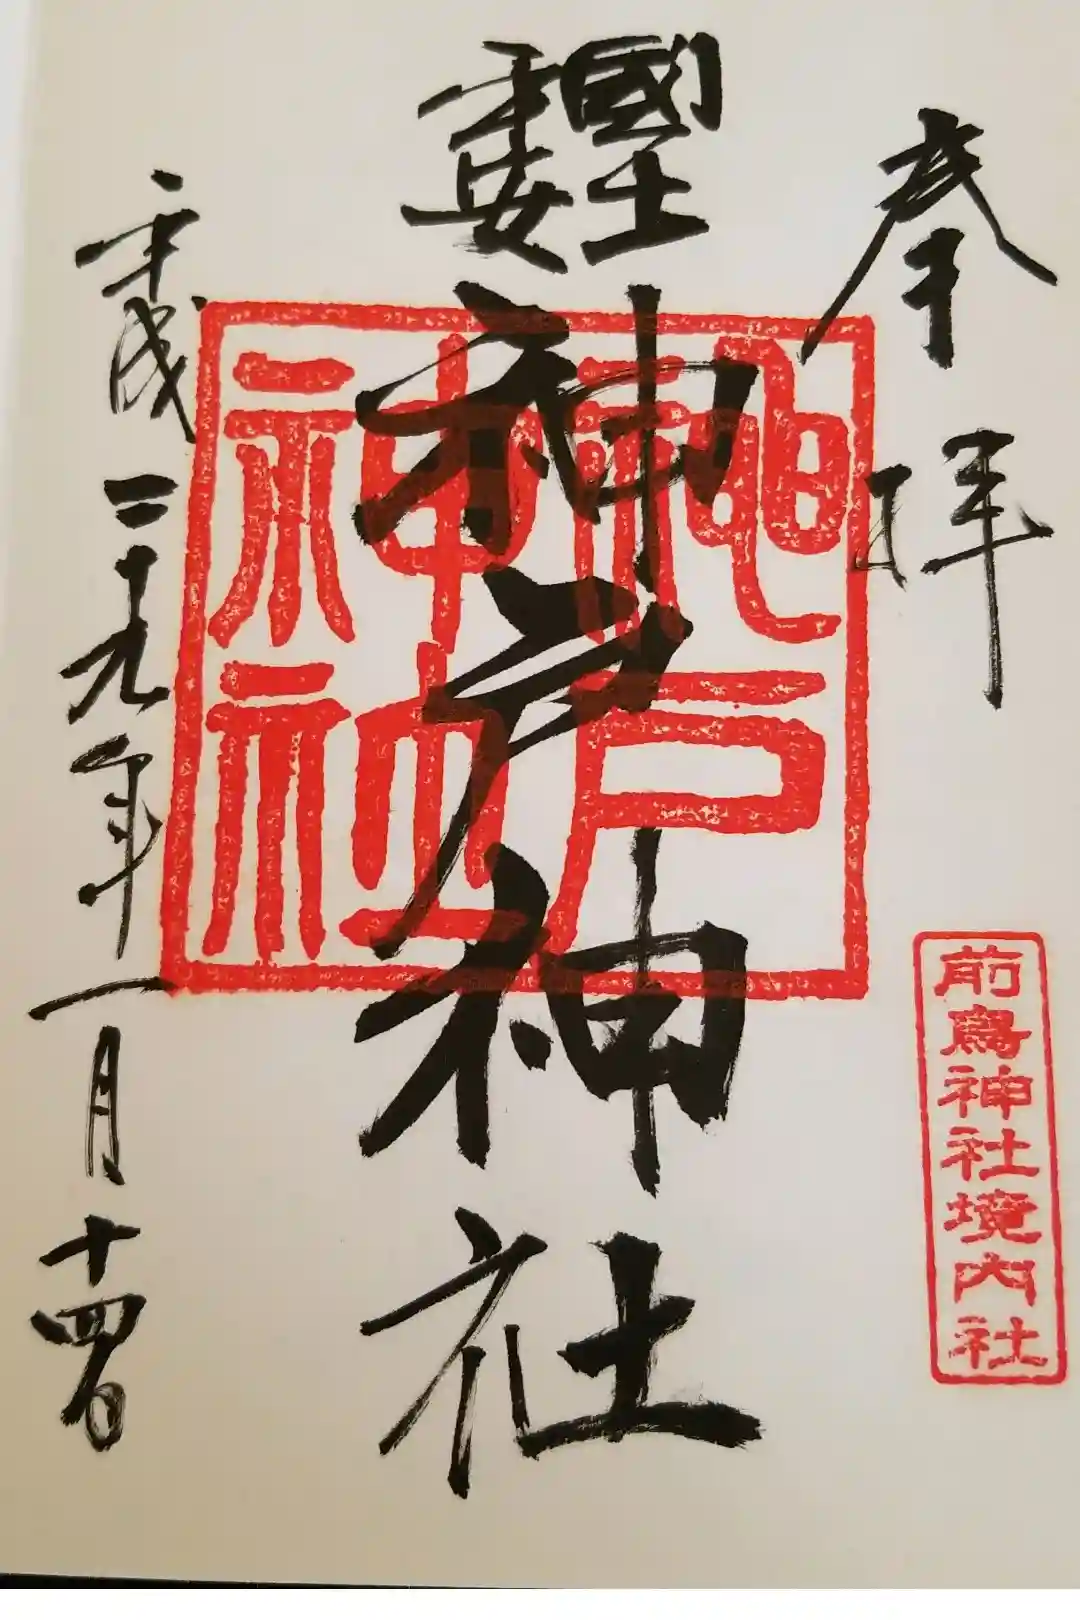 奉拝
國土
神戸神社
神戸
神社
前鳥神社境内社
平成二十九年一月十四日